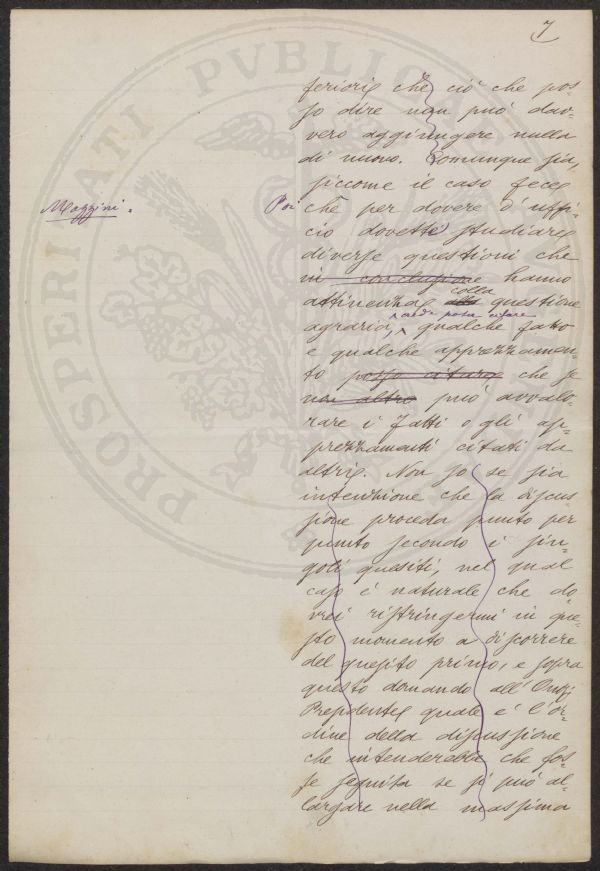 7
feriori che ciò che pos-
so dire non può dav-
vero aggiungere nulla
di nuovo. Comunque sia,
siccome il caso fece
Mazzini. Poi chè per dovere d'uffi-
cio dovette studiare
diverse questioni che
in conclusione hanno
attinenza colla questione
agraria, credo poter citare qualche fatto
e qualche apprezzamen-
to posso citare che se
non altro può avvalo-
rare i fatti o gli ap-
prezzamenti citati da
altri. Non so se sia
intenzione che la discus-
sione proceda punto per
punto secondo i sin-
goli quesiti, nel qual
caso è naturale che do
vrei ristringermi in que-
sto momento a discorrere
del quesito primo, e sopra
questo domando all'Onor.
Presidente quale è l'or-
dine della discussione
che intenderebbe che fos-
se seguita se si può al-
largare nella massima
PROSPERITATI PVBLICAE